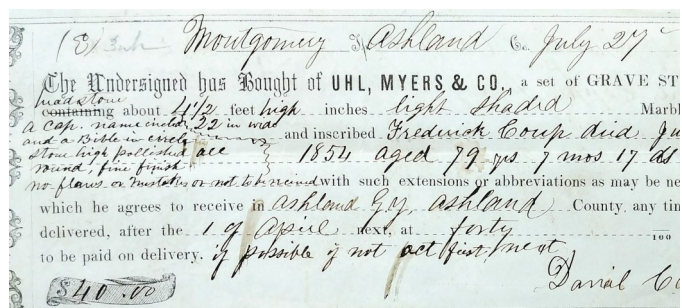 (E) Montgomery Tp Ashland Co. July 27
The Undersigned has Bought of UHL, MYERS & CO., a set of GRAVE ST
head stone
containing about 4 1/2 feet high inches light shaded Marb
a Cap. name circled, 22 in wide
and a Bible in circle and inscribed Frederick Coup died Ju
stone high pollished all 1854 aged 79 ys 7 mos 17 ds
round, fine finish
no flaws or mistakes or not to be received with such extensions or abbreviations as may be ne
which he agrees to receive in Ashland Ashland County, any tim
delivered, after the 1 of April next, at forty 100
to be paid on delivery. if possible if not oct first next
$40.00 Danial Co